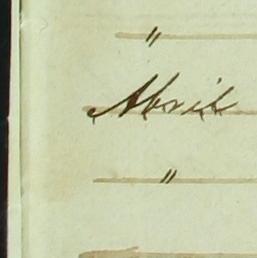 "
Abril
"